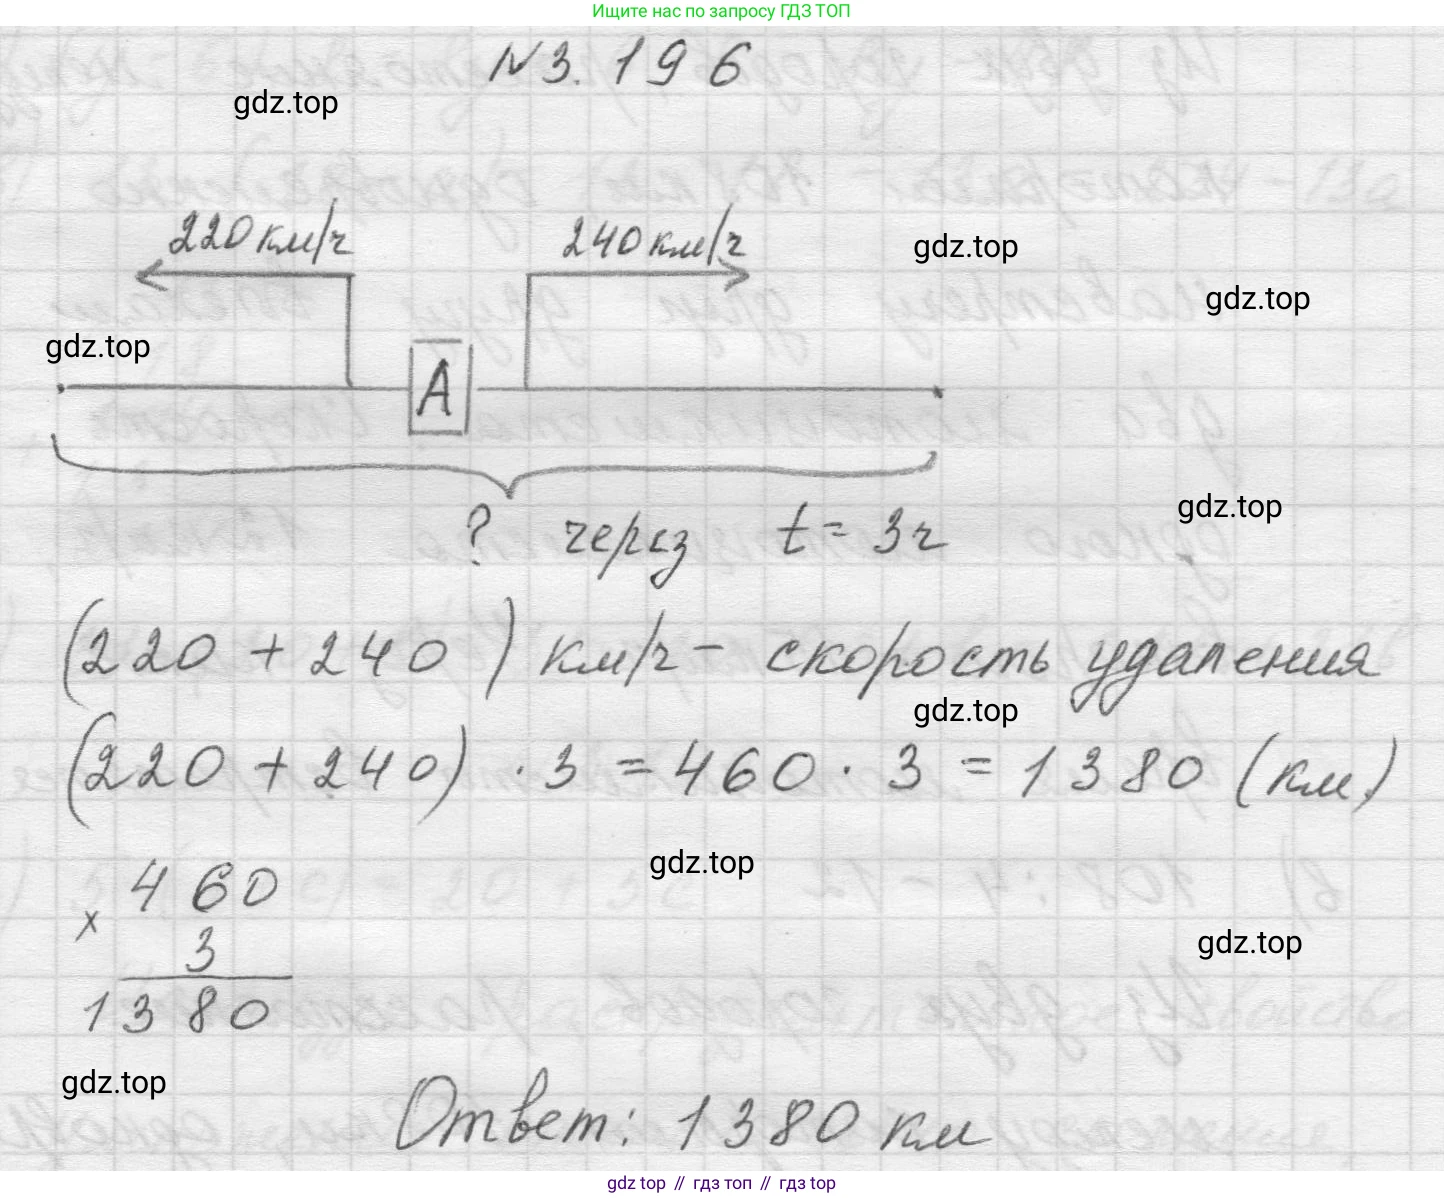 Ищите нас по запросу ГДЗ ТОП
N3.196
gdz.top
220 км/ч
240 км/ч
gdz.top
gdz.top
gdz.top
А
? через t = 3ч
gdz.top
(220 + 240) км/ч - скорость удаления
gdz.top
(220 + 240) · 3 = 460 · 3 = 1380 (км)
gdz.top
460
х
3
gdz.top
1380
gdz.top
Ответ: 1380 км
gdz top // гдз топ // гдз top